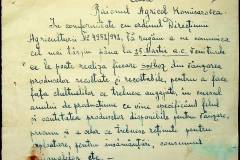 Raionul Agricol Românească
In conformitate cu ordinul Direcțiunii
Agriculturii № 4951/942, Vă rugăm a ne comunica
cel mai târziu până la 25 Martie a.c. veniturile
ce le poate realiza fiecare din vânzarea
produselor recoltate și recoltabile, pentru a face
față cheltuelilor ce trebuesc angajate, în cursul
anului de producțiune ca vine specificând felul
și cantitatea produselor disponibile pentru vânzare,
precum și a celor ce trebuesc reținute pentru
însămânțări, consumul
etc. —